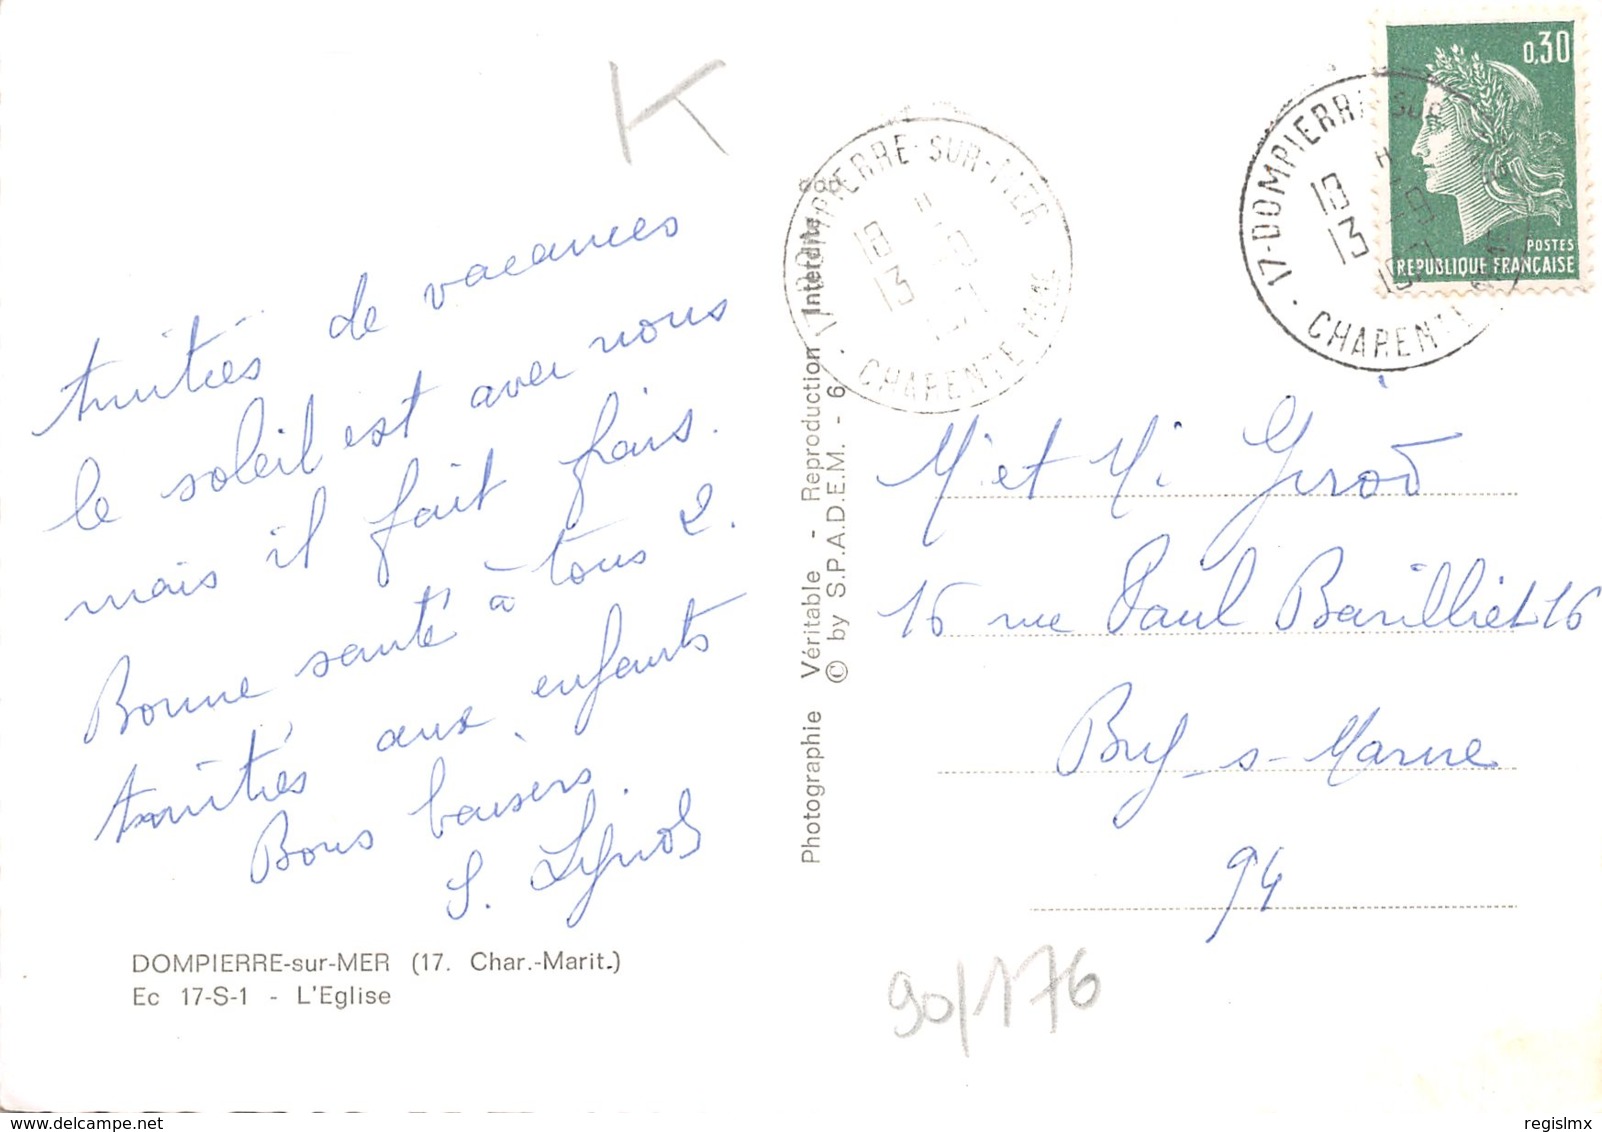 K
Amitiés de vacances
le soleil est avec nous
mais il fait frais.
Bonne santé à tous 2.
Amitiés aux enfants
Bons baisers.
S.
DOMPIERRE-sur-MER (17. Char.-Marit.)
Ec 17-S-1 - L'Eglise
Photographie Véritable - Reproduction Interdite
© by S.P.A.D.E.M. - 6
17 DOMPIERRE-SUR-MER
CHARENTE MME
0,30
POSTES
REPUBLIQUE FRANÇAISE
17-DOMPIERRE SUR
CHARENTE
M. et Mme Girod
16 rue Paul Barilliet 16
Bry-s-Marne
94
90/176
regislmx